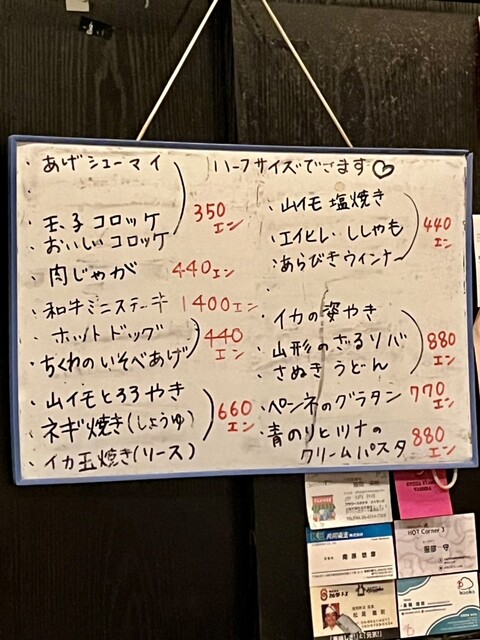 ・あげシューマイ
・玉子コロッケ
・おいしいコロッケ
350エン
・肉じゃが 440エン
・和牛ミニステーキ 1400エン
・ホットドッグ
・ちくわのいそべあげ
440エン
・山イモとろろやき
・ネギ焼き(しょうゆ)
・イカ玉焼き(ソース)
660エン
ハーフサイズできます♡
・山イモ塩焼き
・エイヒレ・ししゃも
・あらびきウインナー
440エン
・イカの姿やき
・山形のざるソバ
・さぬきうどん
880エン
・ペンネのグラタン 770エン
・青のりとツナの
クリームパスタ 880エン
HOT Corner 3